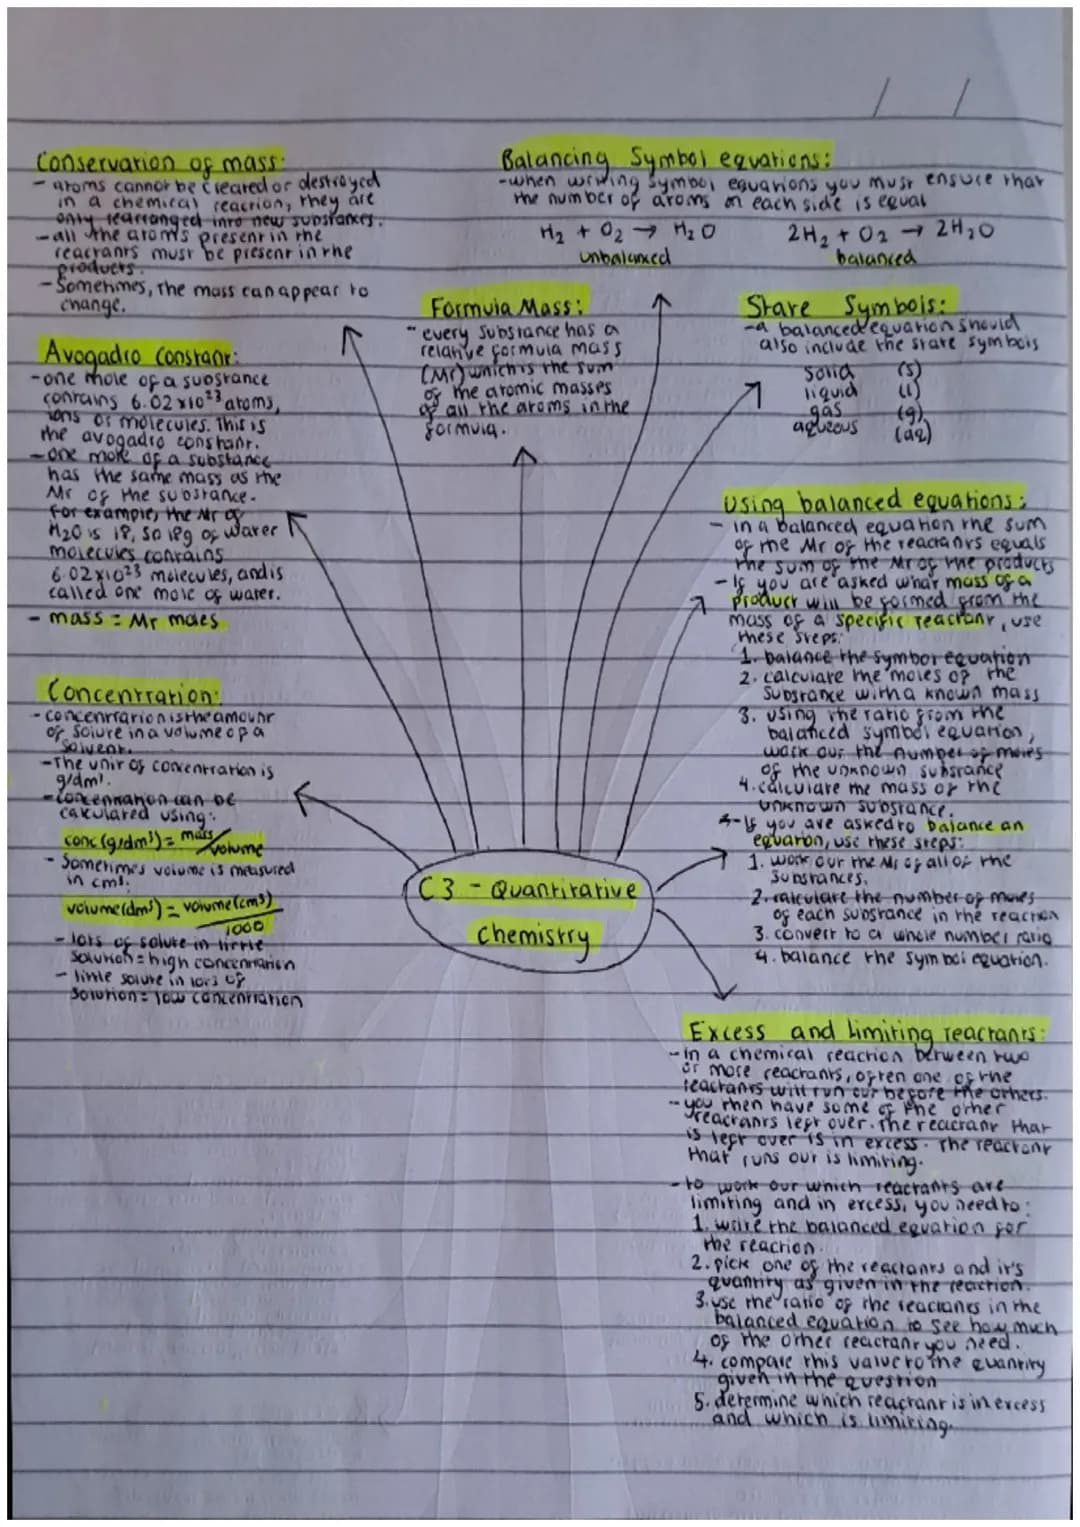 Conservation of mass:
- atoms cannot be created or destroyed
in a chemical reaction, they are
only rearranged into new substances.
- all the atoms present in the
reactants must be present in the
products.
- Sometimes, the mass can appear to
change.
Balancing Symbol equations:
- when writing symbol equations you must ensure that
the number of atoms on each side is equal
H₂ + O₂ → H₂O 2H₂ + O₂ → 2H₂O
unbalanced balanced
Formula Mass:
- every substance has a
relative formula mass
(Mr) which is the sum
of the atomic masses
of all the atoms in the
formula.
State Symbols:
- a balanced equation should
also include the state symbols
solid (s)
liquid (l)
gas (g)
aqueous (aq)
Avogadro constant:
- one mole of a substance
contains 6.02x10²³ atoms,
ions or molecules. This is
the avogadro constant.
- one mole of a substance
has the same mass as the
Mr of the substance.
for example, the Mr of
H₂O is 18, so 18g of water
molecules contains
6.02x10²³ molecules, and is
called one mole of water.
- mass = Mr moles
Using balanced equations:
- in a balanced equation the sum
of the Mr of the reactants equals
the sum of the Mr of the products
- If you are asked what mass of a
product will be formed from the
mass of a specific reactant, use
these steps:
1. balance the symbol equation
2. calculate the moles of the
substance with a known mass
3. using the ratio from the
balanced symbol equation,
work out the number of moles
of the unknown substance
4. calculate the mass of the
unknown substance.
- If you are asked to balance an
equation, use these steps:
1. work out the Mr of all of the
substances.
2. calculate the number of moles
of each substance in the reaction
3. convert to a whole number ratio
4. balance the symbol equation.
Concentration:
- concentration is the amount
of solute in a volume of a
solvent.
- The unit of concentration is
g/dm³.
- concentration can be
calculated using:
conc (g/dm³) = mass/volume
- Sometimes volume is measured
in cm³:
volume(dm³) = volume(cm³)
1000
- lots of solute in little
solution = high concentration
- little solute in lots of
solution = low concentration
C3 - Quantitative
chemistry
Excess and limiting reactants:
- In a chemical reaction between two
or more reactants, often one of the
reactants will run out before the others.
- you then have some of the other
reactants left over. The reactant that
is left over is in excess. The reactant
that runs out is limiting.
- to work out which reactants are
limiting and in excess, you need to:
1. write the balanced equation for
the reaction.
2. pick one of the reactants and it's
quantity as given in the reaction.
3. use the ratio of the reactants in the
balanced equation to see how much
of the other reactant you need.
4. compare this value to the quantity
given in the question
5. determine which reactant is in excess
and which is limiting.